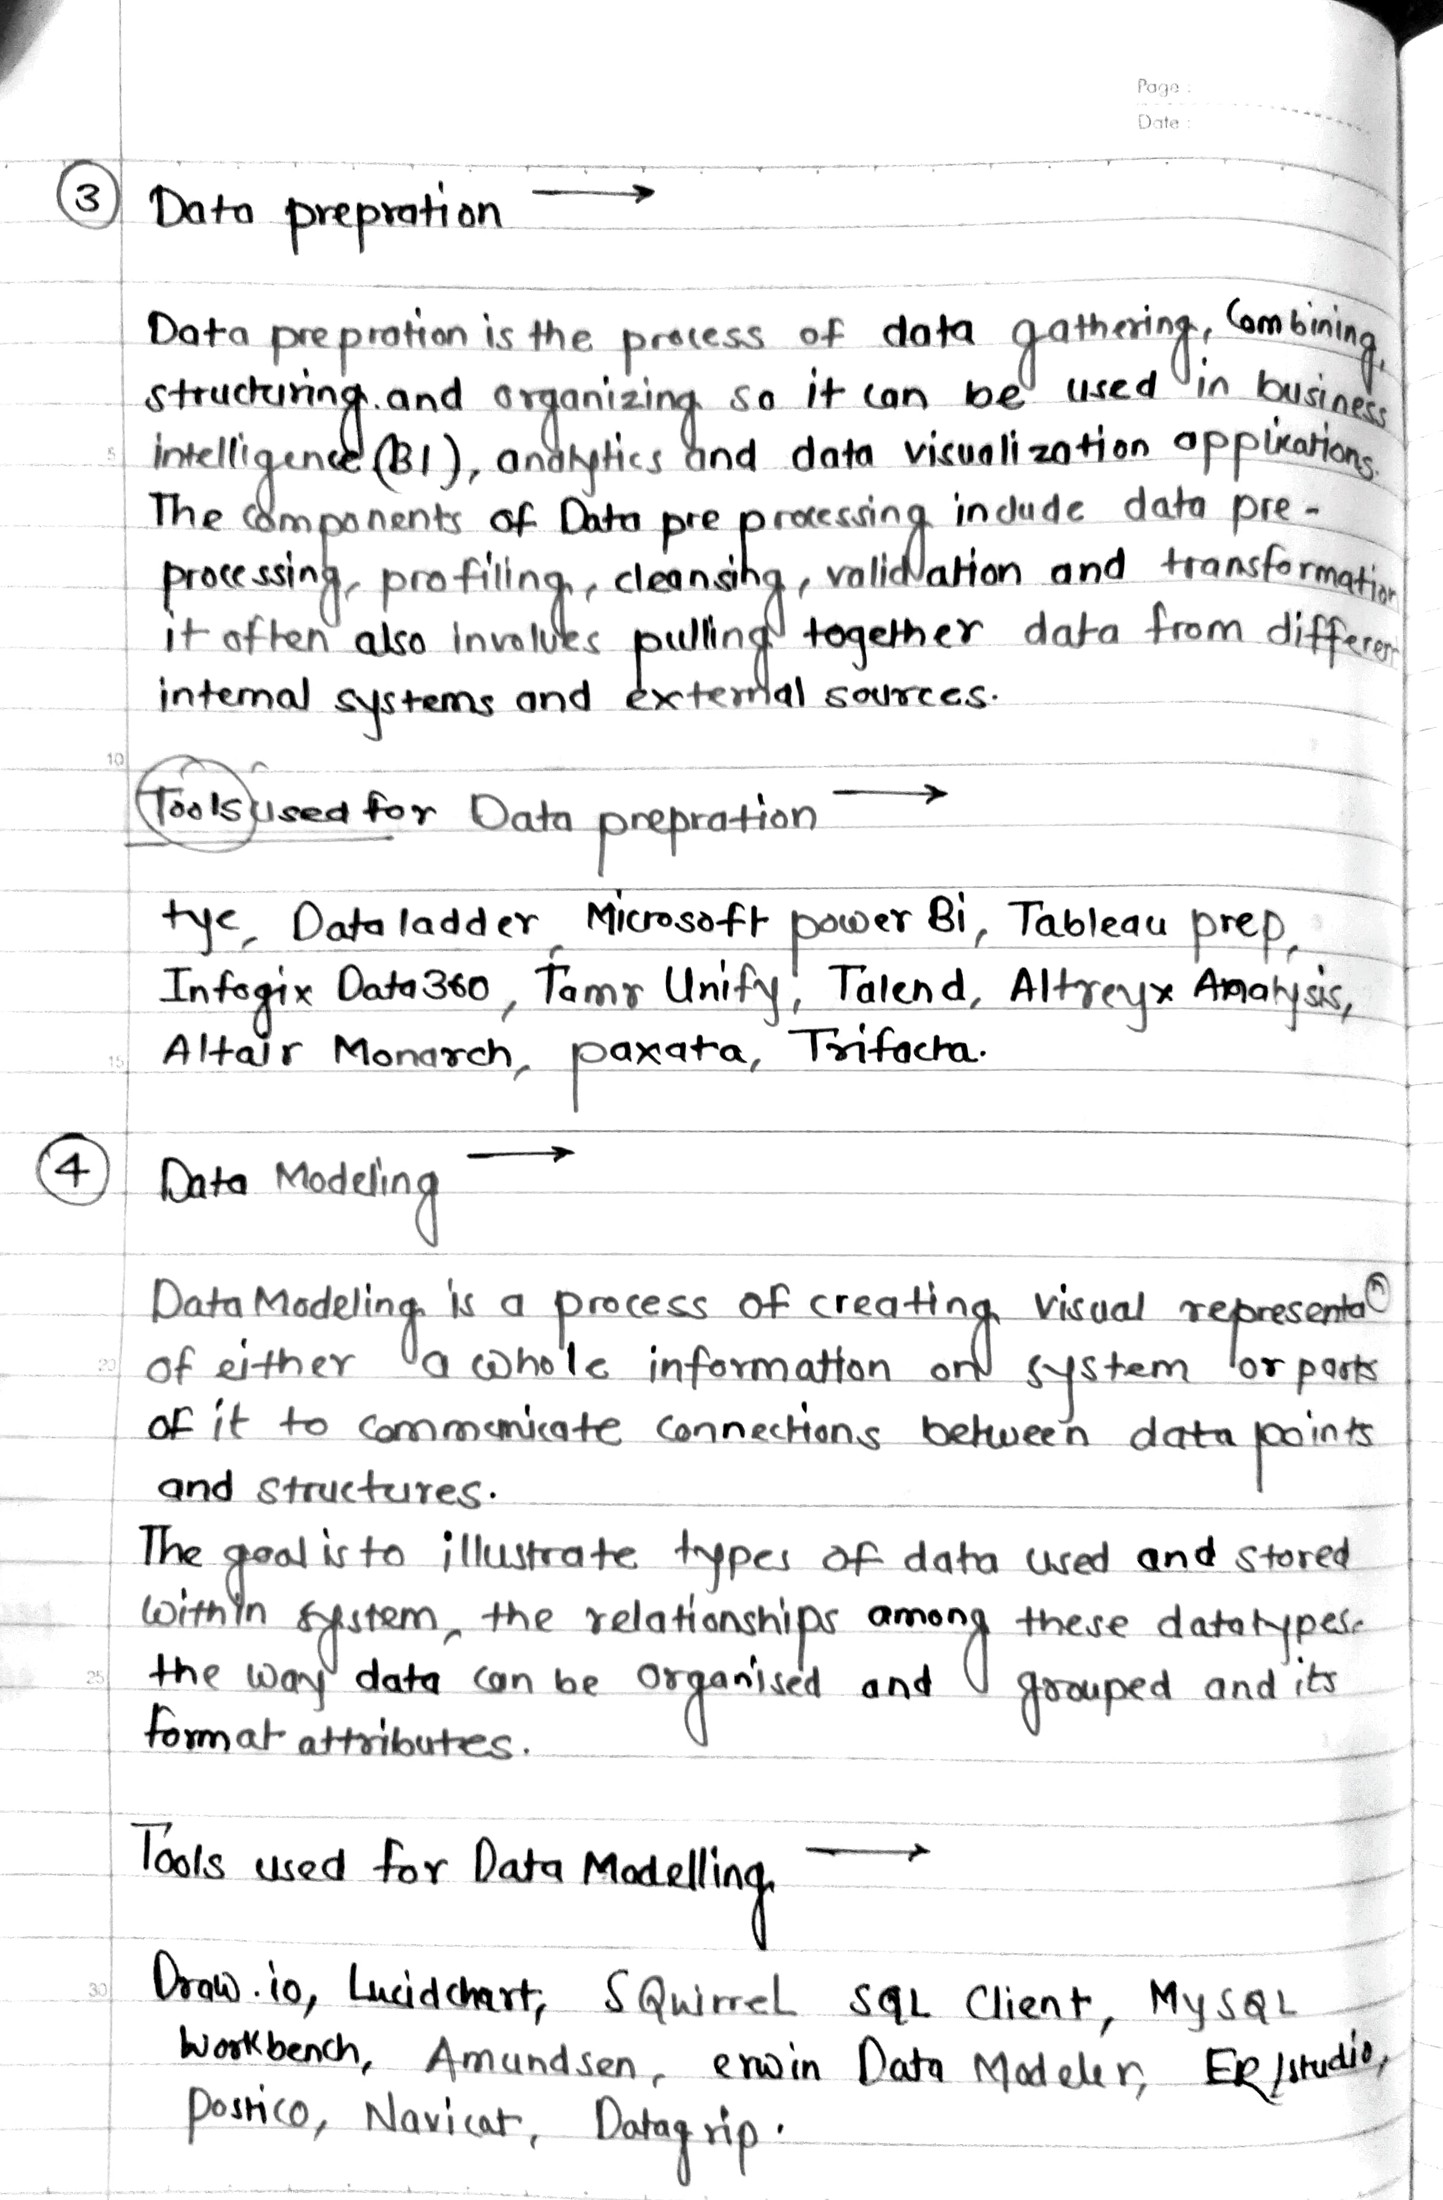 Page :
Date :
3 Data prepration →
Data prepration is the process of data gathering, Combining,
structuring and organizing so it can be used in business
5 intelligence (BI), analytics and data visualization applications.
The components of Data pre processing include data pre-
processing, profiling, cleansing, validation and transformation
it often also involves pulling together data from different
internal systems and external sources.
10
Tools used for Data prepration →
tye, Data ladder, Microsoft power Bi, Tableau prep,
Infogix Data360, Tamr Unify, Talend, Altreyx Analysis,
15 Altair Monarch, paxata, Trifacta.
4 Data Modeling →
Data Modeling is a process of creating visual representa
20 of either a whole information on system or parts
of it to communicate connections between data points
and structures.
The goal is to illustrate types of data used and stored
within system, the relationships among these datatypes.
25 the way data can be organised and grouped and its
format attributes.
Tools used for Data Modelling →
30 Draw.io, Lucidchart, SQuirrel SQL Client, MySQL
Workbench, Amundsen, erwin Data Modeler, ER/studio,
Postico, Navicat, Datagrip.